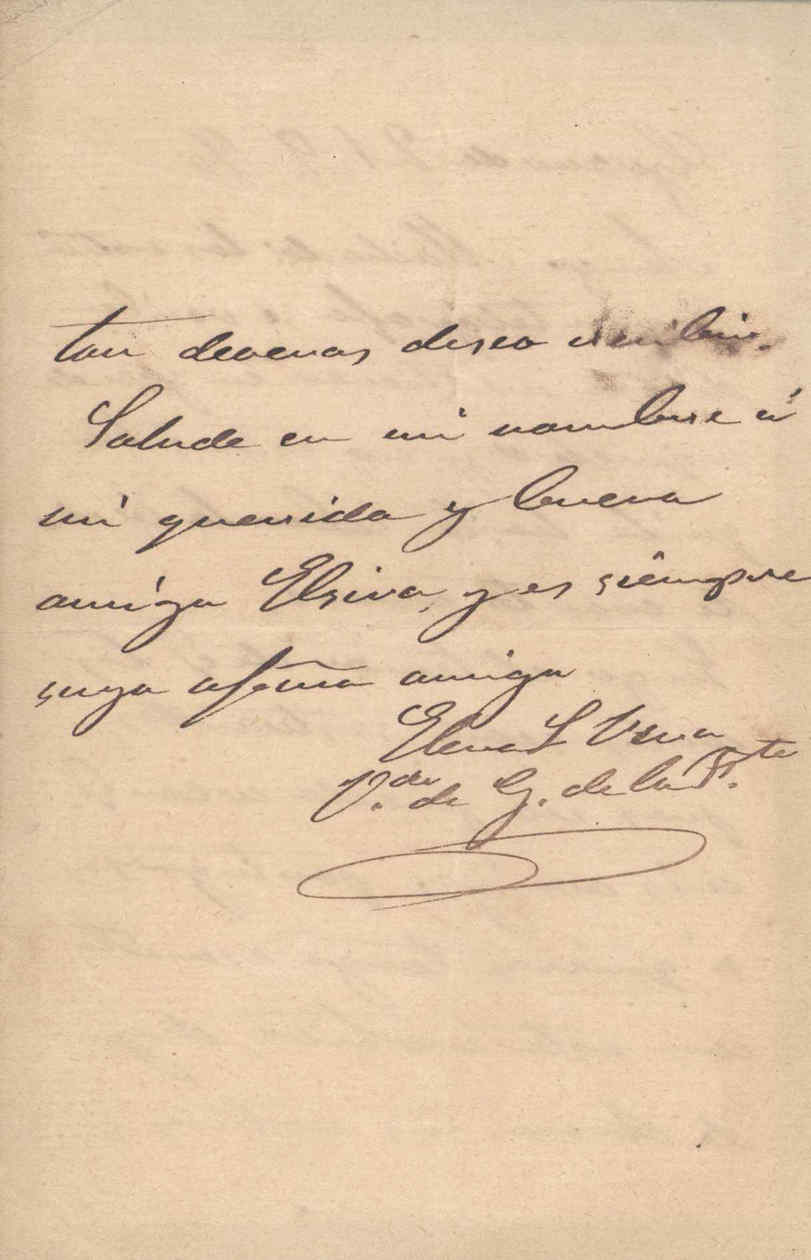 tan deveras deseo recibir.
Salude en mi nombre á
mi querida y buena
amiga Elvira, y es siempre
suya afma amiga
Elena L
V.da de G. de la F.te